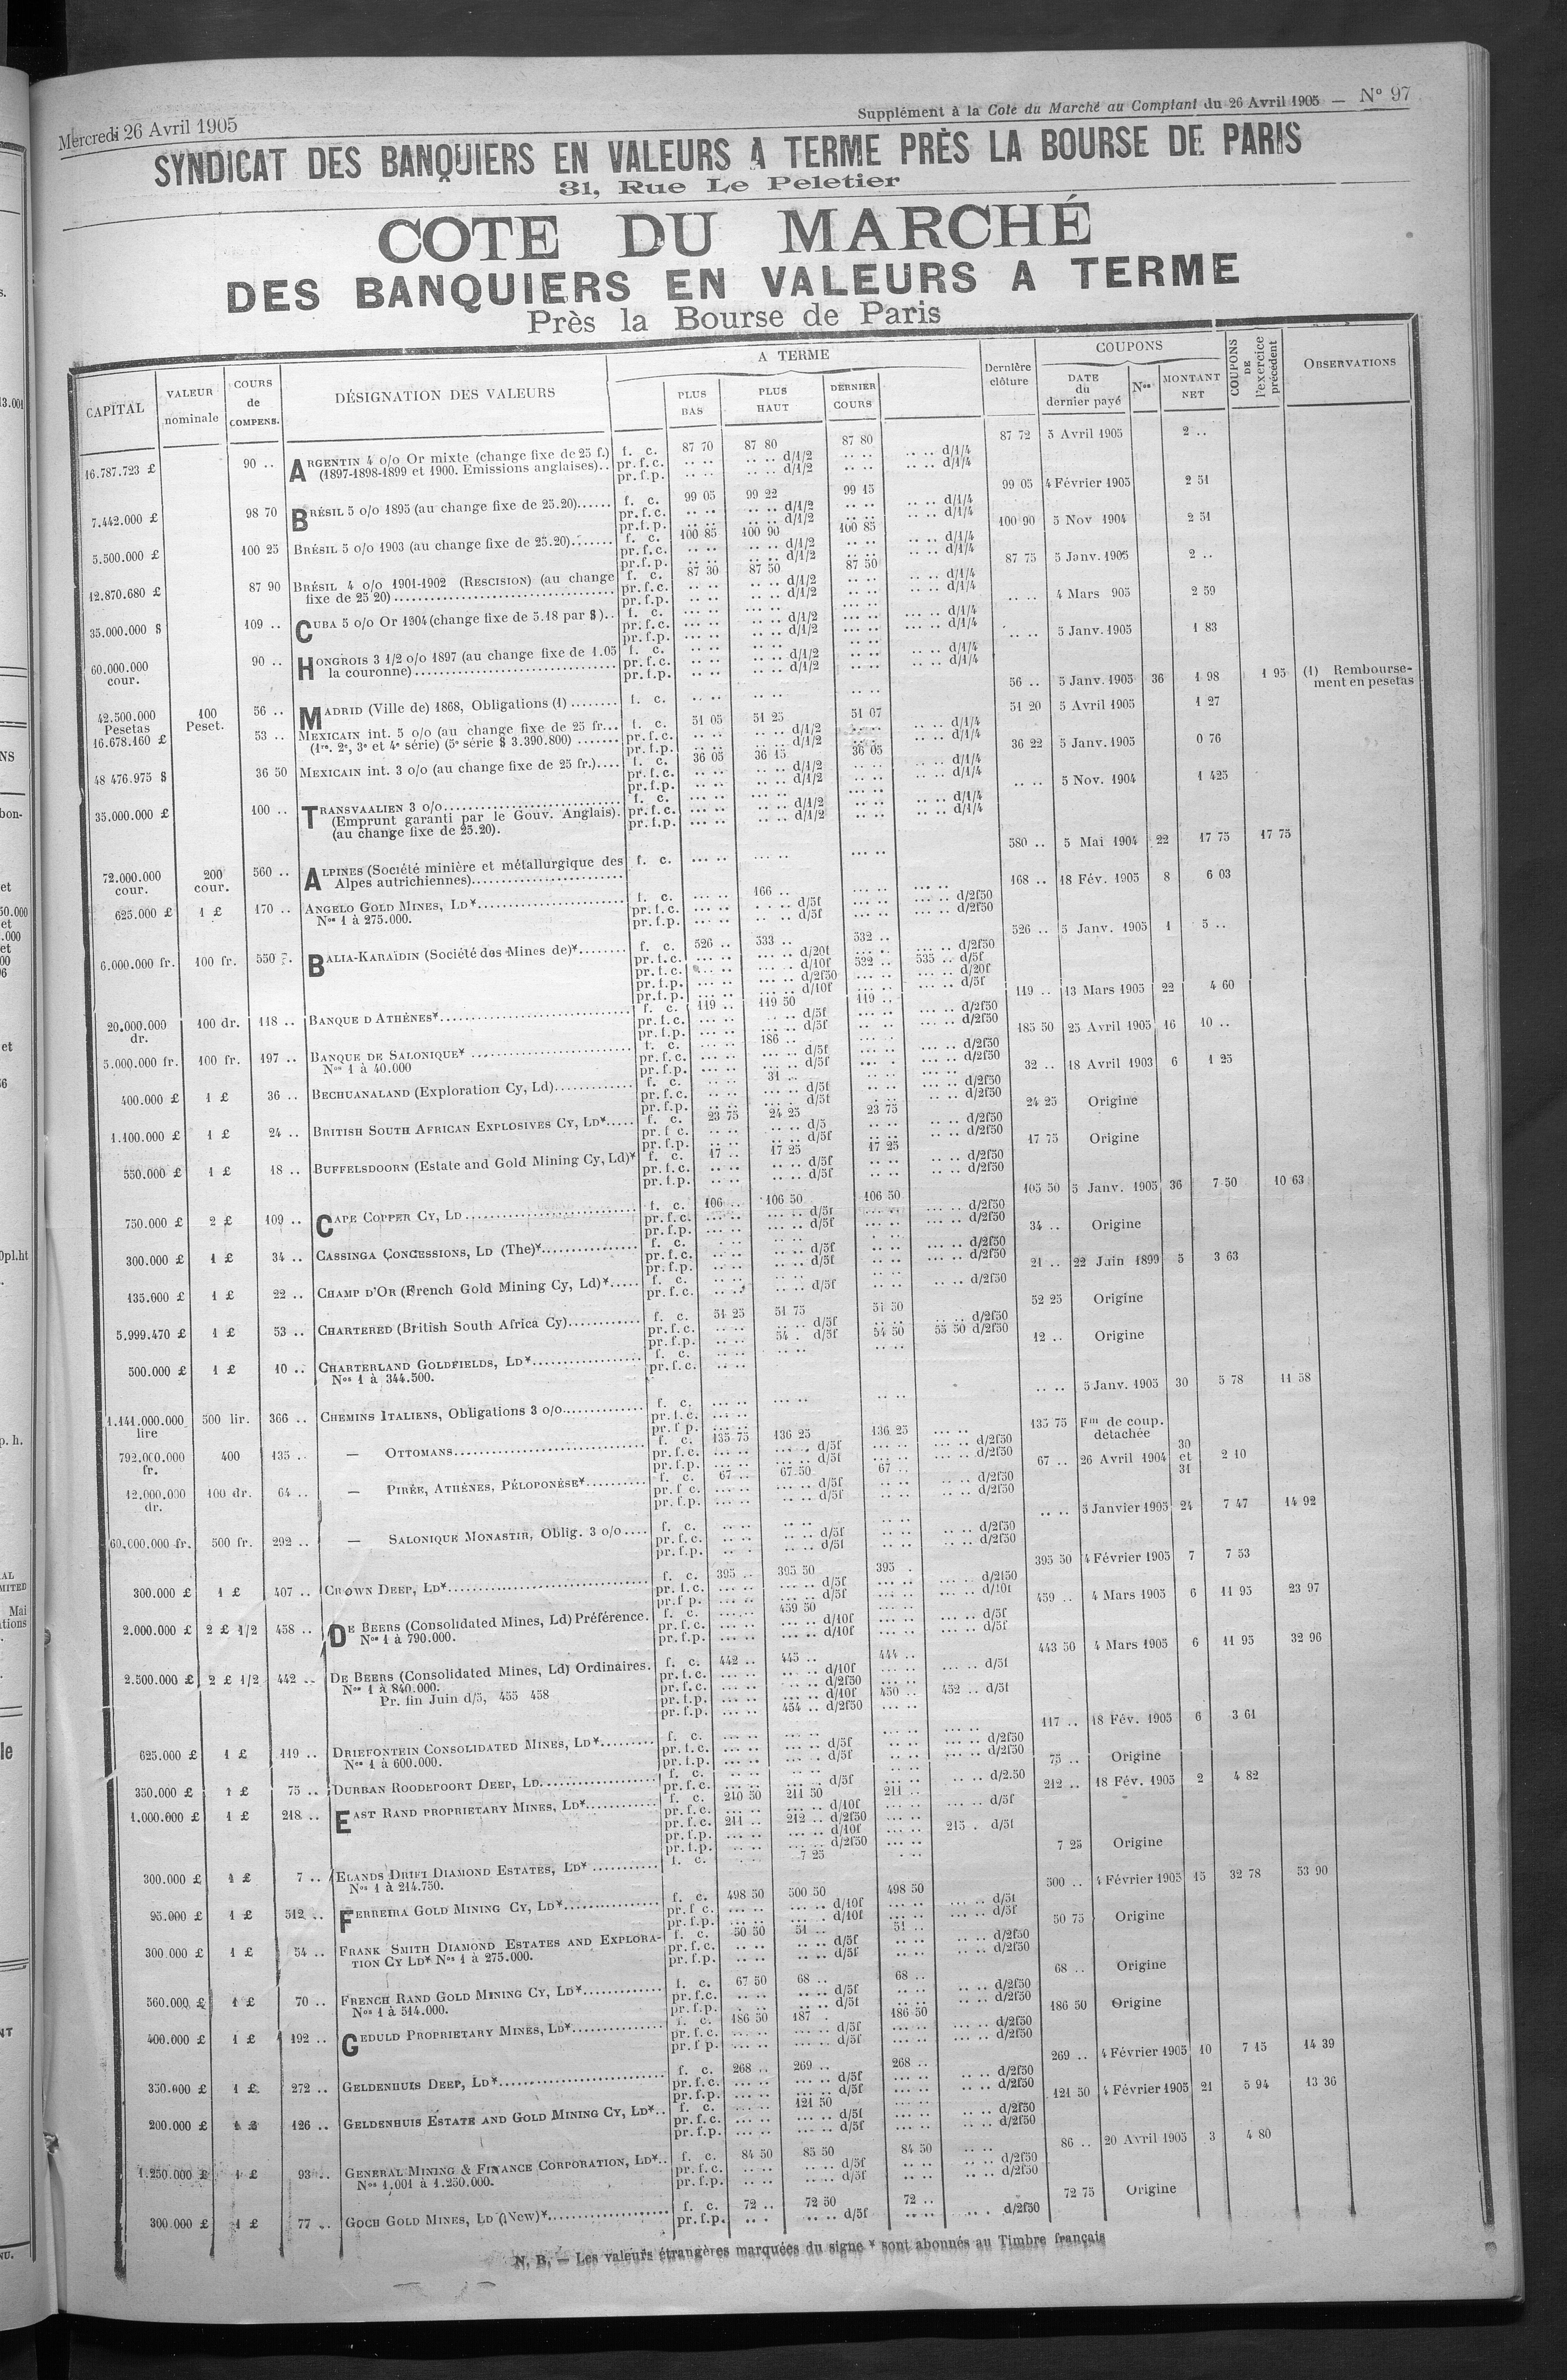 Mercredi 26 Avril 1905
Supplément à la Cote du Marché au Comptant du 26 Avril 1905 — N° 97
SYNDICAT DES BANQUIERS EN VALEURS A TERME PRÈS LA BOURSE DE PARIS
31, Rue Le Peletier
COTE DU MARCHÉ
DES BANQUIERS EN VALEURS A TERME
Près la Bourse de Paris
CAPITAL | VALEUR nominale | COURS de COMPENS. | DÉSIGNATION DES VALEURS | A TERME | PLUS BAS | PLUS HAUT | DERNIER COURS | Dernière clôture | COUPONS | DATE du dernier payé | Nos | MONTANT NET | COUPONS DE l'exercice précédent | OBSERVATIONS
16.787.723 £ 90 .. ARGENTIN 4 o/o Or mixte (change fixe de 25 f.) f. c. 87 70 87 80 87 80 87 72 5 Avril 1905 2 ..
(1897-1898-1899 et 1900. Emissions anglaises).. pr.f.c. .. .. .. .. d/1/2 .. .. .. .. d/1/4
pr.f.p. .. .. .. .. d/1/2 .. .. .. .. d/1/4
7.442.000 £ 98 70 BRÉSIL 5 o/o 1895 (au change fixe de 25.20)...... f. c. 99 05 99 22 99 15 99 05 4 Février 1905 2 51
pr.f.c. .. .. .. .. d/1/2 .. .. .. .. d/1/4
pr.f.p. .. .. .. .. d/1/2 .. .. .. .. d/1/4
5.500.000 £ 100 25 BRÉSIL 5 o/o 1903 (au change fixe de 25.20)....... f. c. 100 85 100 90 100 85 100 90 5 Nov 1904 2 51
pr.f.c. .. .. .. .. d/1/2 .. .. .. .. d/1/4
pr.f.p. .. .. .. .. d/1/2 .. .. .. .. d/1/4
12.870.680 £ 87 90 BRÉSIL 4 o/o 1901-1902 (RESCISION) (au change f. c. 87 30 87 50 87 50 87 75 5 Janv. 1905 2 ..
fixe de 25 20) pr.f.c. .. .. .. .. d/1/2 .. .. .. .. d/1/4
pr.f.p. .. .. .. .. d/1/2 .. .. .. .. d/1/4
35.000.000 $ 109 .. CUBA 5 o/o Or 1904 (change fixe de 5.18 par $).. f. c. ... .. ... .. ... .. .. .. 4 Mars 905 2 59
pr.f.c. ... .. .. .. d/1/2 ... .. ... .. d/1/4
pr.f.p. ... .. .. .. d/1/2 ... .. ... .. d/1/4
60.000.000 cour. 90 .. HONGROIS 3 1/2 o/o 1897 (au change fixe de 1.05 f. c. .. .. .. .. .. .. .. .. 5 Janv. 1905 1 83
la couronne) pr.f.c. .. .. .. .. d/1/2 .. .. .. .. d/1/4
pr.f.p. .. .. .. .. d/1/2 .. .. .. .. d/1/4
42.500.000 Pesetas 100 Peset. 56 .. MADRID (Ville de) 1868, Obligations (1) ........ f. c. .. .. .. .. .. .. 56 .. 5 Janv. 1905 36 1 98 1 95 (1) Rembourse-
ment en pesetas
16.678.160 £ 53 .. MEXICAIN int. 5 o/o (au change fixe de 25 fr... f. c. 51 05 51 25 51 07 51 20 5 Avril 1905 1 27
(1re. 2e, 3e et 4e série) (5e série $ 3.390.800) ....... pr.f.c. .. .. .. .. d/1/2 .. .. .. .. d/1/4
pr.f.p. .. .. .. .. d/1/2 .. .. .. .. d/1/4
48 476.975 $ 36 50 MEXICAIN int. 3 o/o (au change fixe de 25 fr.).... f. c. 36 05 36 15 36 05 36 22 5 Janv. 1905 0 76
pr.f.c. .. .. .. .. d/1/2 .. .. .. .. d/1/4
pr.f.p. .. .. .. .. d/1/2 .. .. .. .. d/1/4
35.000.000 £ 100 .. TRANSVAALIEN 3 o/o f. c. ... .. .. .. ... .. .. .. 5 Nov. 1904 1 425
(Emprunt garanti par le Gouv. Anglais). pr.f.c. ... .. .. .. d/1/2 ... .. ... .. d/1/4
(au change fixe de 25.20). pr.f.p. ... .. .. .. d/1/2 ... .. ... .. d/1/4
72.000.000 cour. 200 cour. 560 .. ALPINES (Société minière et métallurgique des f. c. ... .. ... .. ... .. 580 .. 5 Mai 1904 22 17 75 17 75
Alpes autrichiennes)
625.000 £ 1 £ 170 .. ANGELO GOLD MINES, LD* f. c. ... .. 166 .. ... .. ... .. 168 .. 18 Fév. 1905 8 6 03
Nos 1 à 275.000. pr.f.c. ... .. d/5f ... .. d/2f50
pr.f.p. ... .. d/5f ... .. d/2f50
6.000.000 fr. 100 fr. 550 .. BALIA-KARAÏDIN (Société des Mines de)* f. c. 526 .. 533 .. 532 .. 526 .. 5 Janv. 1905 1 5 ..
pr.f.c. ... .. ... .. d/20f ... .. ... .. d/2f50
pr.f.c. ... .. ... .. d/10f 532 .. 535 .. d/5f
pr.f.p. ... .. ... .. d/2f50 ... .. ... .. d/20f
pr.f.p. ... .. ... .. d/10f ... .. ... .. d/5f
20.000.000 dr. 100 dr. 118 .. BANQUE D ATHÈNES* f. c. 119 .. 119 50 119 .. 119 .. 13 Mars 1905 22 4 60
pr.f.c. ... .. d/5f ... .. d/2f50
pr.f.p. ... .. d/5f ... .. d/2f50
5.000.000 fr. 100 fr. 197 .. BANQUE DE SALONIQUE* f. c. ... .. 186 .. 185 50 25 Avril 1905 16 10 ..
Nos 1 à 40.000 pr.f.c. ... .. d/5f ... .. d/2f50
pr.f.p. ... .. d/5f ... .. d/2f50
400.000 £ 1 £ 36 .. BECHUANALAND (Exploration Cy, Ld) f. c. .. .. 31 .. 32 .. 18 Avril 1903 6 1 25
pr.f.c. .. .. d/5f .. .. d/2f50
pr.f.p. .. .. d/5f .. .. d/2f50
1.100.000 £ 1 £ 24 .. BRITISH SOUTH AFRICAN EXPLOSIVES CY, LD* f. c. 23 75 24 25 23 75 24 25 Origine
pr.f.c. .. .. d/5 .. .. d/2f50
pr.f.p. .. .. d/5f .. .. d/2f50
550.000 £ 1 £ 18 .. BUFFELSDOORN (Estate and Gold Mining Cy, Ld)* f. c. 17 .. 17 25 17 25 17 75 Origine
pr.f.c. .. .. d/5f .. .. d/2f50
pr.f.p. .. .. d/5f .. .. d/2f50
750.000 £ 2 £ 109 .. CAPE COPPER CY, LD f. c. 106 .. 106 50 106 50 105 50 5 Janv. 1905 36 7 50 10 63
pr.f.c. ... .. d/5f ... .. d/2f50
pr.f.p. ... .. d/5f ... .. d/2f50
300.000 £ 1 £ 34 .. CASSINGA CONCESSIONS, LD (The)* f. c. 34 .. Origine
pr.f.c. .. .. d/5f .. .. d/2f50
pr.f.p. .. .. d/5f .. .. d/2f50
135.000 £ 1 £ 22 .. CHAMP D'OR (French Gold Mining Cy, Ld)* f. c. .. .. .. .. .. .. 21 .. 22 Juin 1899 5 3 63
pr.f.c. .. .. d/5f .. .. d/2f50
5.999.470 £ 1 £ 53 .. CHARTERED (British South Africa Cy) f. c. 51 25 51 75 51 50 52 25 Origine
pr.f.c. .. .. d/5f .. .. d/2f50
pr.f.p. .. .. 54 . d/5f 54 50 55 50 d/2f50
500.000 £ 1 £ 10 .. CHARTERLAND GOLDFIELDS, LD* f. c. .. .. .. .. .. .. 12 .. Origine
Nos 1 à 344.500. pr.f.c. .. ..
1.141.000.000 lire 500 lir. 366 .. CHEMINS ITALIENS, Obligations 3 o/o f. c. ... .. ... .. .. .. .. .. 5 Janv. 1905 30 5 78 11 58
pr.f.c. ... ..
pr.f p. ... ..
792.000.000 fr. 400 135 .. — OTTOMANS f. c. 135 75 136 25 136 25 ... .. 135 75 Fm de coup. détachée
pr.f.c. ... .. d/5f ... .. d/2f50
pr.f.p. ... .. d/5f ... .. d/2f50
12.000.000 dr. 100 dr. 64 .. — PIRÉE, ATHÈNES, PÉLOPONÈSE* f. c. 67 .. 67 50 67 .. 67 .. 26 Avril 1904 30 et 31 2 10
pr.f.c. .. .. d/5f .. .. d/2f50
pr.f.p. .. .. d/5f .. .. d/2f50
60.000.000 fr. 500 fr. 292 .. — SALONIQUE MONASTIR, Oblig. 3 o/o.... f. c. .. .. .. .. .. .. .. .. 5 Janvier 1905 24 7 47 14 92
pr.f.c. .. .. d/5f .. .. d/2f50
pr.f.p. .. .. d/5f .. .. d/2f50
300.000 £ 1 £ 407 .. CROWN DEEP, LD* f. c. 395 .. 395 50 395 . 395 50 4 Février 1905 7 7 53
pr.f.c. ... .. d/5f ... .. d/2f50
pr.f p. ... .. d/5f ... .. d/10f
2.000.000 £ 2 £ 1/2 458 .. DE BEERS (Consolidated Mines, Ld) Préférence. f. c. ... .. 459 50 459 .. 4 Mars 1905 6 11 95 23 97
Nos 1 à 790.000. pr.f.c. ... .. d/10f ... .. d/5f
pr.f.p. ... .. d/10f ... .. d/5f
2.500.000 £ 2 £ 1/2 442 .. DE BEERS (Consolidated Mines, Ld) Ordinaires. f. c. 442 .. 445 .. 444 .. 443 50 4 Mars 1905 6 11 95 32 96
Nos 1 à 840.000. pr.f.c. ... .. d/10f ... .. d/5f
Pr. fin Juin d/5, 455 458 pr.f.c. ... .. d/2f50 ... ..
pr.f.p. ... .. d/10f 450 .. 452 .. d/5f
pr.f.p. ... .. 454 .. d/2f50 ... ..
625.000 £ 1 £ 119 .. DRIEFONTEIN CONSOLIDATED MINES, LD* f. c. ... .. ... .. ... .. 117 .. 18 Fév. 1905 6 3 61
Nos 1 à 600.000. pr.f.c. ... .. d/5f ... .. d/2f50
pr.f.p. ... .. d/5f ... .. d/2f50
350.000 £ 1 £ 75 .. DURBAN ROODEPOORT DEEP, LD. f. c. .. .. .. .. .. .. 75 .. Origine
pr.f.c. ... .. d/5f .. .. d/2.50
1.000.000 £ 1 £ 218 .. EAST RAND PROPRIETARY MINES, LD* f. c. 210 50 211 50 211 .. 212 .. 18 Fév. 1905 2 4 82
pr.f.c. ... .. d/10f ... .. d/5f
pr.f.c. 211 .. 212 .. d/2f50 ... ..
pr.f.p. ... .. d/10f ... .. 215 . d/5f
pr.f.p. ... .. d/2f50 ... ..
300.000 £ 1 £ 7 .. ELANDS DRIFT DIAMOND ESTATES, LD* f. c. 7 25 7 25 Origine
Nos 1 à 214.750.
95.000 £ 1 £ 512 .. FERREIRA GOLD MINING CY, LD* f. c. 498 50 500 50 498 50 500 .. 4 Février 1905 15 32 78 53 90
pr.f c. ... .. d/10f ... .. d/5f
pr.f.p. ... .. d/10f ... .. d/5f
300.000 £ 1 £ 54 .. FRANK SMITH DIAMOND ESTATES AND EXPLORA- f. c. 50 50 51 .. 51 .. 50 75 Origine
TION CY LD* Nos 1 à 275.000. pr.f.c. .. .. d/5f .. .. d/2f50
pr.f.p. .. .. d/5f .. .. d/2f50
560.000 £ 1 £ 70 .. FRENCH RAND GOLD MINING CY, LD* f. c. 67 50 68 .. 68 .. 68 .. Origine
Nos 1 à 514.000. pr.f.c. .. .. d/5f .. .. d/2f50
pr.f.p. .. .. d/5f .. .. d/2f50
400.000 £ 1 £ 192 .. GEDULD PROPRIETARY MINES, LD* f. c. 186 50 187 . 186 50 186 50 Origine
pr.f.c. ... .. d/5f ... .. d/2f50
pr.f p. ... .. d/5f ... .. d/2f50
350.000 £ 1 £ 272 .. GELDENHUIS DEEP, LD* f. c. 268 .. 269 .. 268 .. 269 .. 4 Février 1905 10 7 15 14 39
pr.f.c. ... .. d/5f .. .. d/2f50
pr.f.p. ... .. d/5f .. .. d/2f50
200.000 £ 1 £ 126 .. GELDENHUIS ESTATE AND GOLD MINING CY, LD*.. f. c. ... .. 121 50 ... .. 121 50 4 Février 1905 21 5 94 13 36
pr.f.c. ... .. d/5f .. .. d/2f50
pr.f.p. ... .. d/5f .. .. d/2f50
1.250.000 £ 1 £ 93 .. GENERAL MINING & FINANCE CORPORATION, LD*.. f. c. 84 50 85 50 84 50 86 .. 20 Avril 1905 3 4 80
Nos 1,001 à 1.250.000. pr.f.c. .. .. d/5f .. .. d/2f50
pr.f.p. .. .. d/5f .. .. d/2f50
300.000 £ 1 £ 77 .. GOCH GOLD MINES, LD (New)* f. c. 72 .. 72 50 72 .. 72 75 Origine
pr.f.p. .. . .. .. d/5f .. .. d/2f50
N. B. — Les valeurs étrangères marquées du signe * sont abonnés au Timbre français